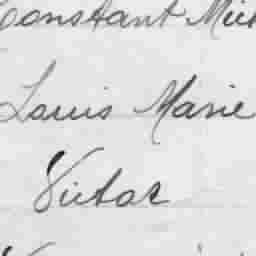 Constant Mic
Louis Marie
Victor